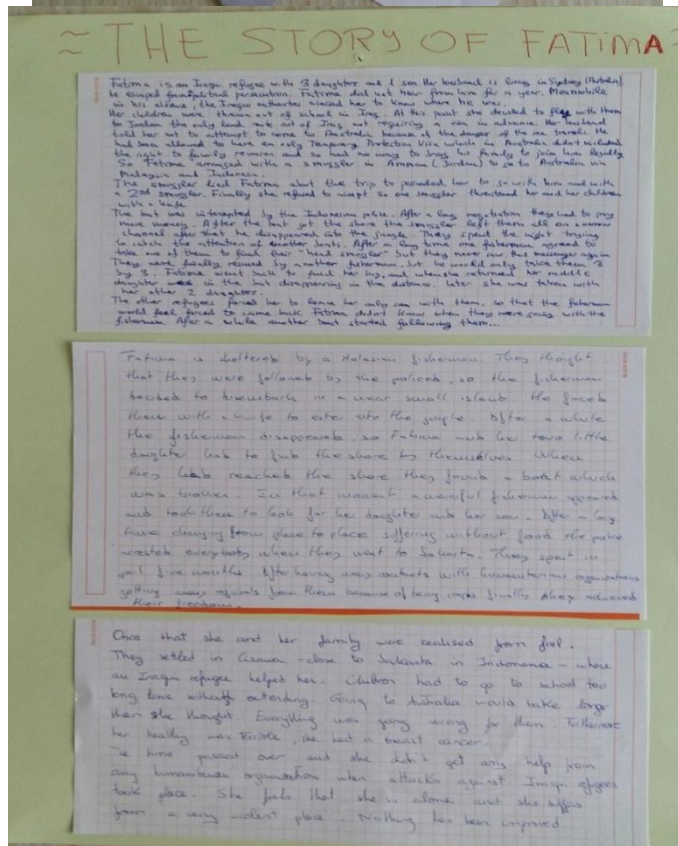 ≈ THE STORY OF FATIMA ≈
Fatima is an Iraqi refugee with 3 daughter and 1 son. Her husband is living in Sydney (Australia)
he escaped from political persecution. Fatima did not hear from him for a year. Meanwhile
in his absence, the Iraqi authorities wanted her to know where he was.
Her children were thrown out of school in Iraq. At this point she decided to flee with them
to Jordan the only land route out of Iraq not requiring a visa in advance. Her husband
told her not to attempt to come to Australia because of the danger of the sea travels. He
had been allowed to have an only Temporary Protection Visa which in Australia didn't included
the right to family reunion and so had no way to bring his family to join him legally
So Fatima arranged with a smuggler in Amman (Jordan) to go to Australia via
Malaysia and Indonesia.
The smuggler lied Fatima about the trip to persuaded her to go with him and with
a 2nd smuggler. Finally she refused to accept so one smuggler threatened her and her children
with a knife.
The boat was intercepted by the Indonesian police. After a long negotiation they had to pay
more money. After the boat got the shore the smuggler left them all on a narrow
channel after that he disappeared into the jungle. They spent the night trying
to catch the attention of another boats. After a long time one fisherman agreed to
take one of them to find their "head smuggler" but they never saw this messenger again
They were finally rescued by another fisherman, but he would only take them 3
by 3. Fatima went back to find her bag, and when she returned her middle
daughter was in the boat disappearing in the distance. Later she was taken with
her other 2 daughters.
The other refugees forced her to leave her only son with them, so that the fisherman
would feel forced to come back. Fatima didn't know where they were going with the
fisherman. After a while another boat started following them...
Fatima is sheltered by a Malasian fisherman. They thought
that they were followed by the policed, so the fisherman
decided to disembark in a near small island. He forced
them with a knife to enter into the jungle. After a while
the fisherman disappeared, so Fatima and her two little
daughter had to find the shore by themselves. When
they had reached the shore they found a boat which
was broken. In that moment a merciful fisherman appeared
and took them to look for her daughter and her son. After a long
time changing from place to place suffering without food the police
arrested everybody when they went to Jakarta. They spent in
jail five months. After having many contacts with humanitarian organisations
getting many refusals from them because of being finally they achieved
their freedom.
Once that she and her family were realised from
They settled in Cisarua - close to Jakarta in Indonesia - where
an Iraqi refugee helped her. Children had to go to school too
long time without attending. Going to Australia would take longer
than she thought. Everything was going wrong for them. Futhermore
her healthy was terrible, she had a breast cancer.
The time passed over and she didn't get any help from
any humanitarian organisation when attacks against Iraqi refugees
took place. She feels that she is alone and she suffers
from a very violent place. Nothing has been improved.